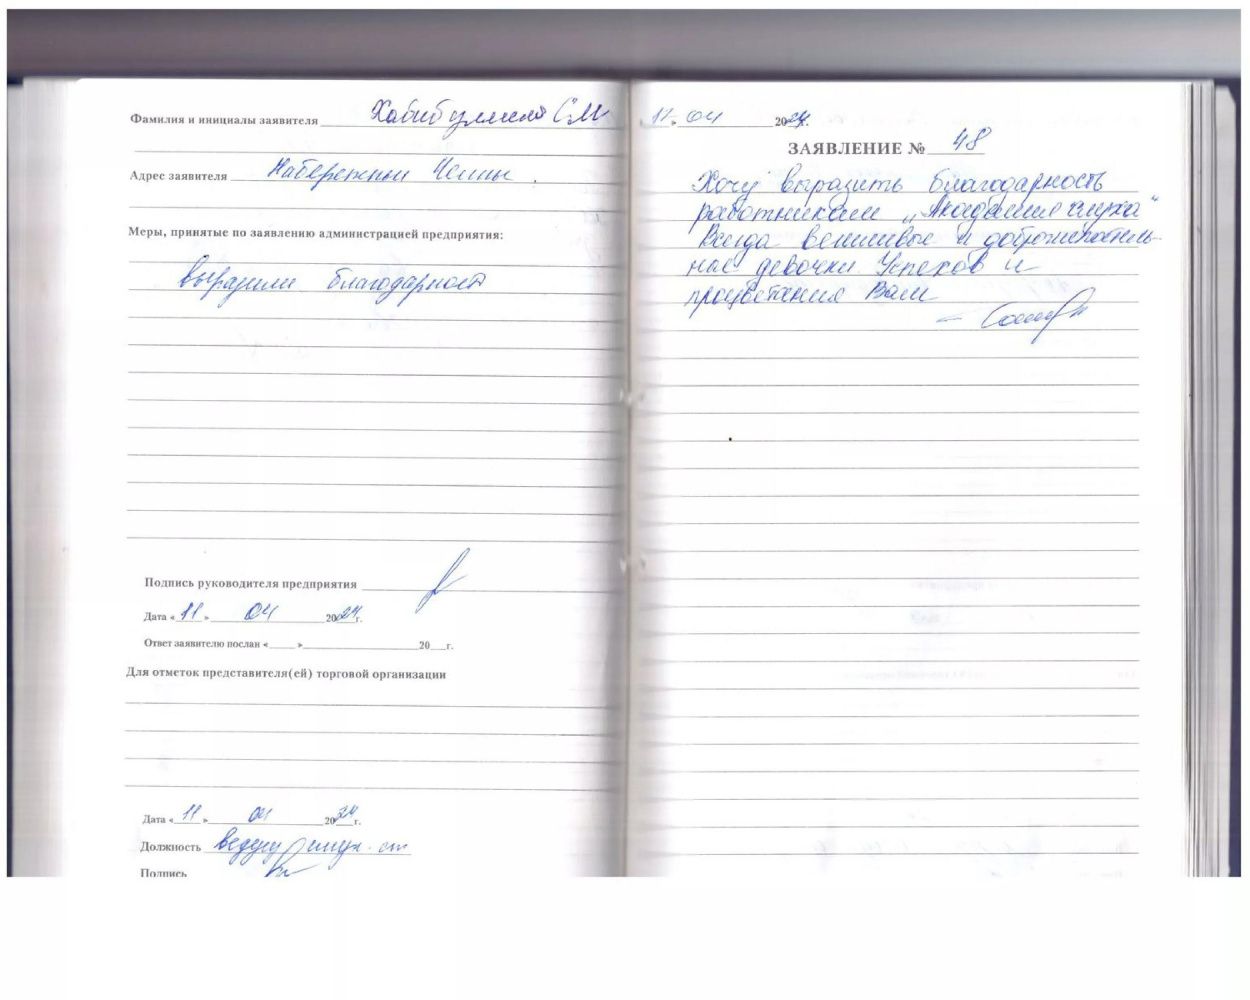 Фамилия и инициалы заявителя Хабибуллина С.М
Адрес заявителя Набережные Челны
Меры, принятые по заявлению администрацией предприятия:
выразили благодарность
Подпись руководителя предприятия
Дата « 11 » 04 2024г.
Ответ заявителю послан « » 20 г.
Для отметок представителя(ей) торговой организации
Дата « 11 » 04 2024г.
Должность
Подпись
11 » 04 2024г.
ЗАЯВЛЕНИЕ № 48
Хочу выразить благодарность
работникам „Академия слуха"
Всегда вежливые и доброжелатель-
ные девочки. Успехов и
процветания Вам